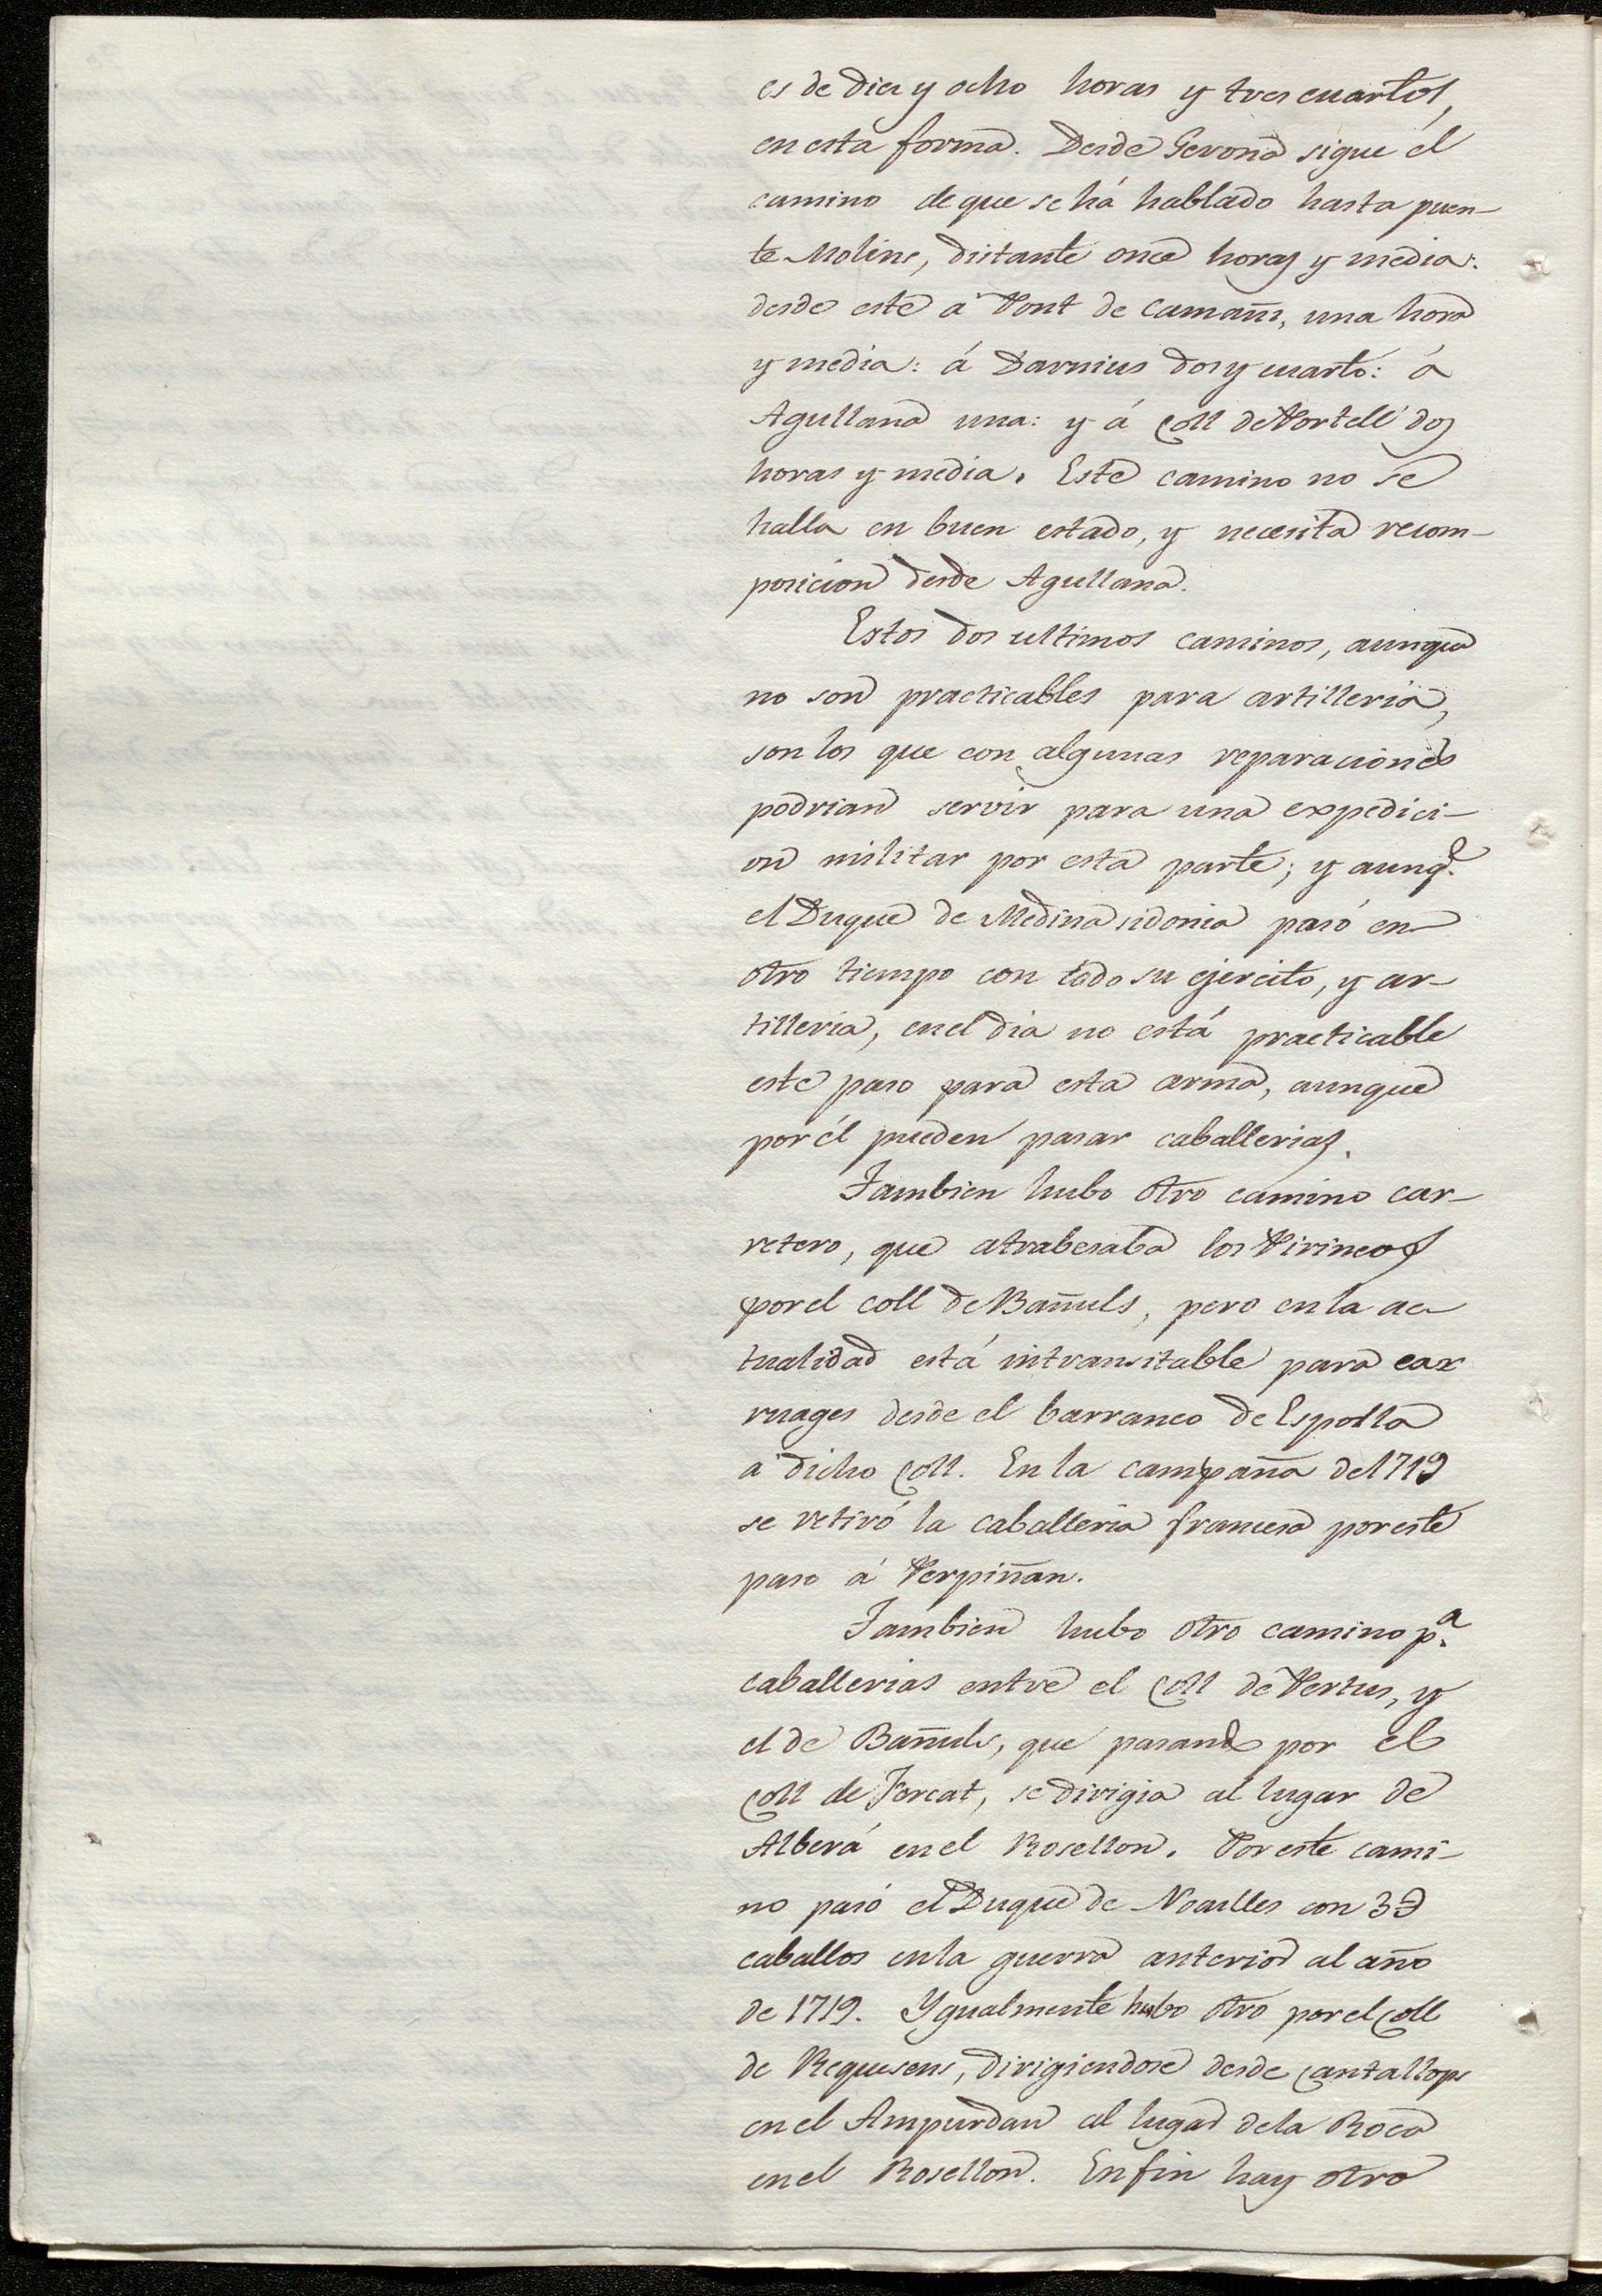 es de diez y ocho horas y tres cuartos,
en esta forma. Desde Gerona sigue el
camino de que se há hablado hasta puen-
te Molins, distante once horas y media:
desde este a Pont de Camañs, una hora
y media: á Darnius dos y cuarto: á
Agullana una: y á Coll de Portell dos
horas y media. Este camino no se
halla en buen estado, y necesita recom-
posicion desde Agullana.
Estos dos ultimos caminos, aunque
no son practicables para artilleria,
son los que con algunas reparaciones
podrian servir para una expedici-
on militar por esta parte; y aunq.e
el Duque de Medina sidonia pasó en
otro tiempo con todo su ejercito, y ar-
tilleria, en el dia no está practicable
este paso para esta arma, aunque
por él pueden pasar caballerias.
Tambien hubo otro camino car-
retero, que atrabesaba los Pirineos
por el coll de Bañuls, pero en la ac-
tualidad está intransitable para car
ruages desde el barranco de Espolla
a dicho Coll. En la campaña de 1719
se retiró la caballeria francesa por este
paso á Perpiñan.
Tambien hubo otro camino p.a
caballerias entre el Coll de Pertus, y
el de Bañuls, que pasando por el
Coll de Forcat, se dirigia al lugar de
Alberá en el Rosellon. Por este cami-
no pasó el Duque de Noailles con 3D
caballos en la guerra anterior al año
de 1719. Ygualmente hubo otro por el Coll
de Requesens, dirigiendose desde Cantallops
en el Ampurdan al lugar de la Roca
en el Rosellon. En fin hay otro